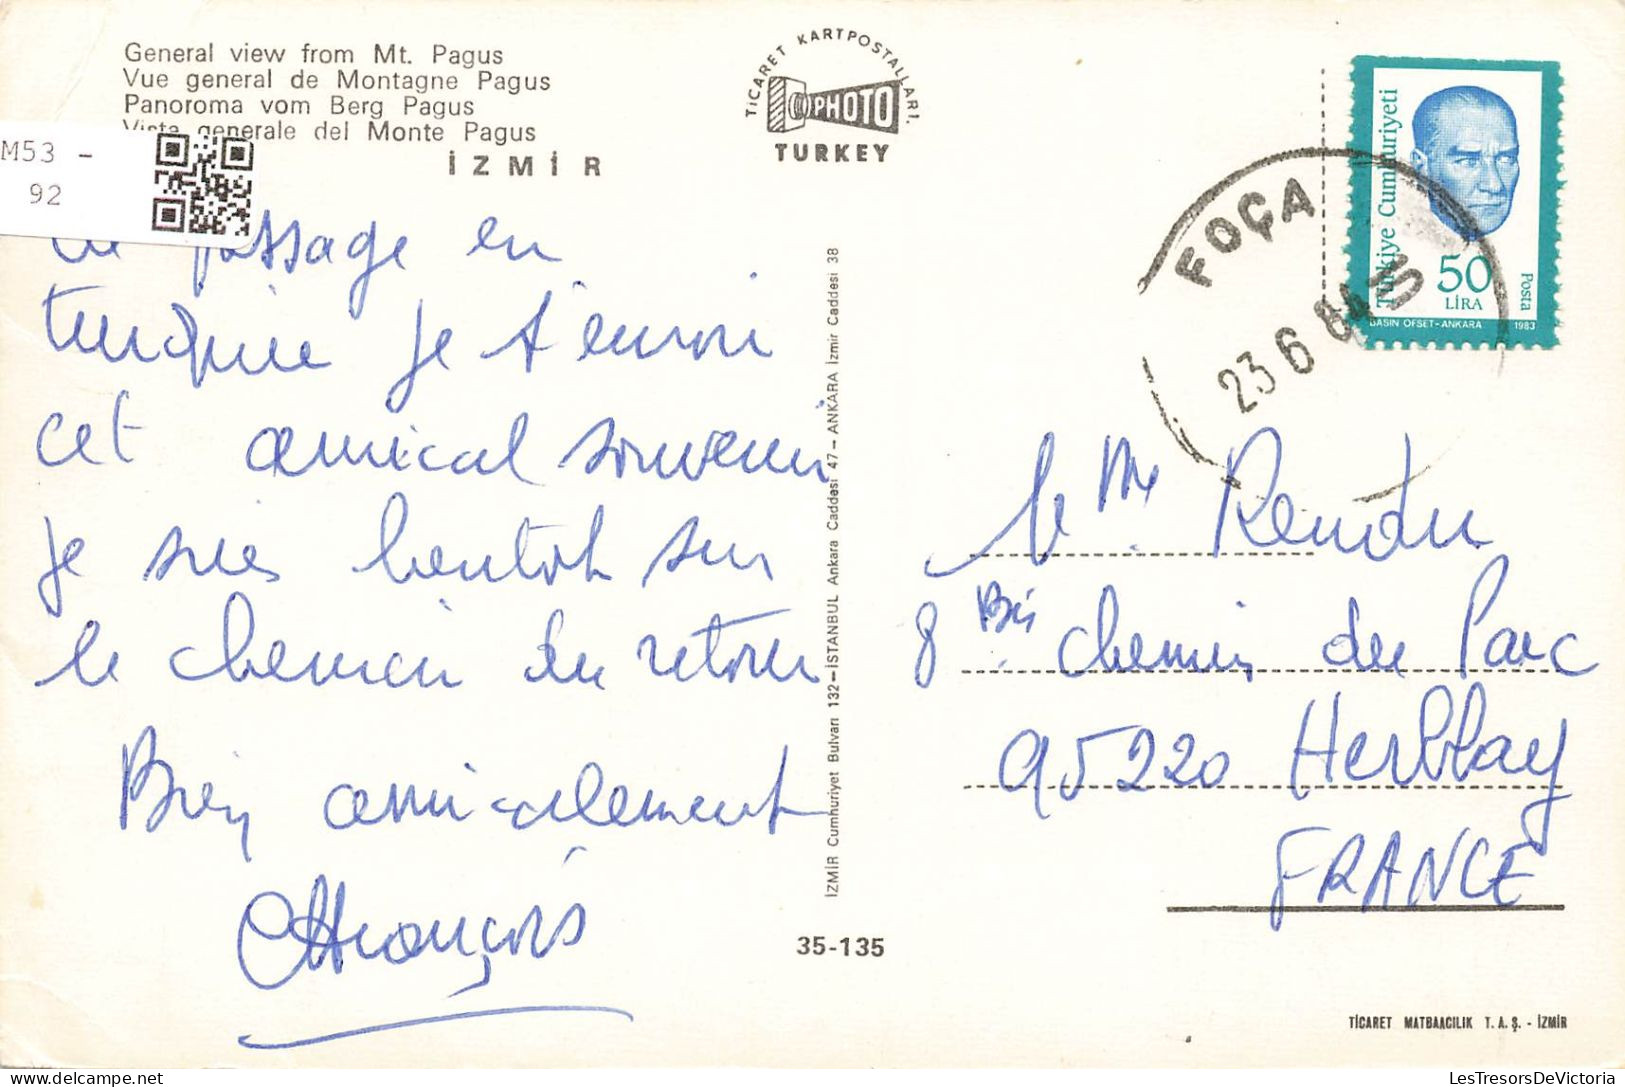 General view from Mt. Pagus
Vue general de Montagne Pagus
Panoroma vom Berg Pagus
Vista generale del Monte Pagus
İZMİR
M53 -
92
TİCARET KARTPOSTALLARI.
PHOTO
TURKEY
Türkiye Cumhuriyeti
50
LİRA
Posta
BASIN OFSET-ANKARA 1983
FOÇA
23 6 84
de passage en
turquie je t'envoi
cet amical souvenir
je suis bientôt sur
le chemin du retour
Bien amicalement
François
İZMİR Cumhuriyet Bulvarı 132-İSTANBUL Ankara Caddesi 47-ANKARA İzmir Caddesi 38
35-135
Rendu
8 Bis chemin du Parc
95220 Herblay
FRANCE
TİCARET MATBAACILIK T.A.Ş. - İZMİR
delcampe.net
LesTresorsDeVictoria